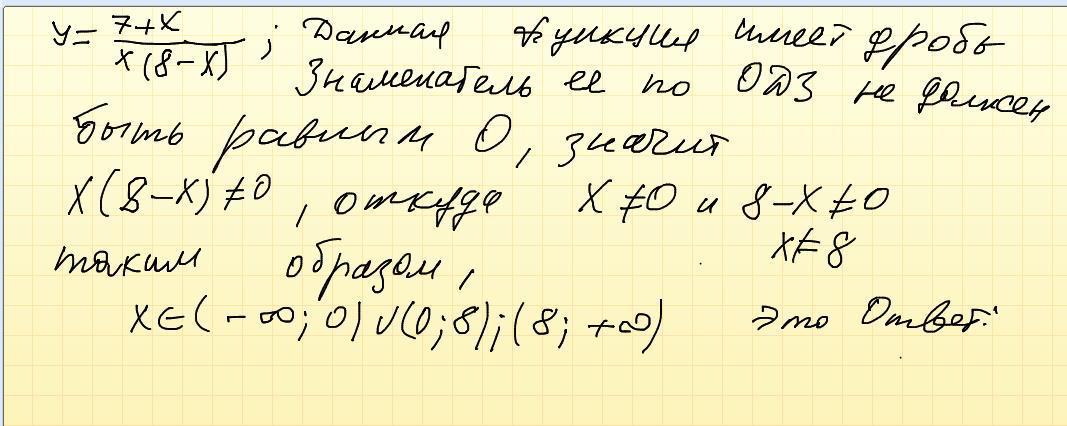 y = (7+x)/(x(8-x)) ; Данная функция имеет дробь
Знаменатель ее по ОДЗ не должен
быть равным 0, значит
x(8-x)≠0 , откуда x≠0 и 8-x≠0
x≠8
таким образом,
x∈(-∞; 0)∪(0;8);(8; +∞) это Ответ: